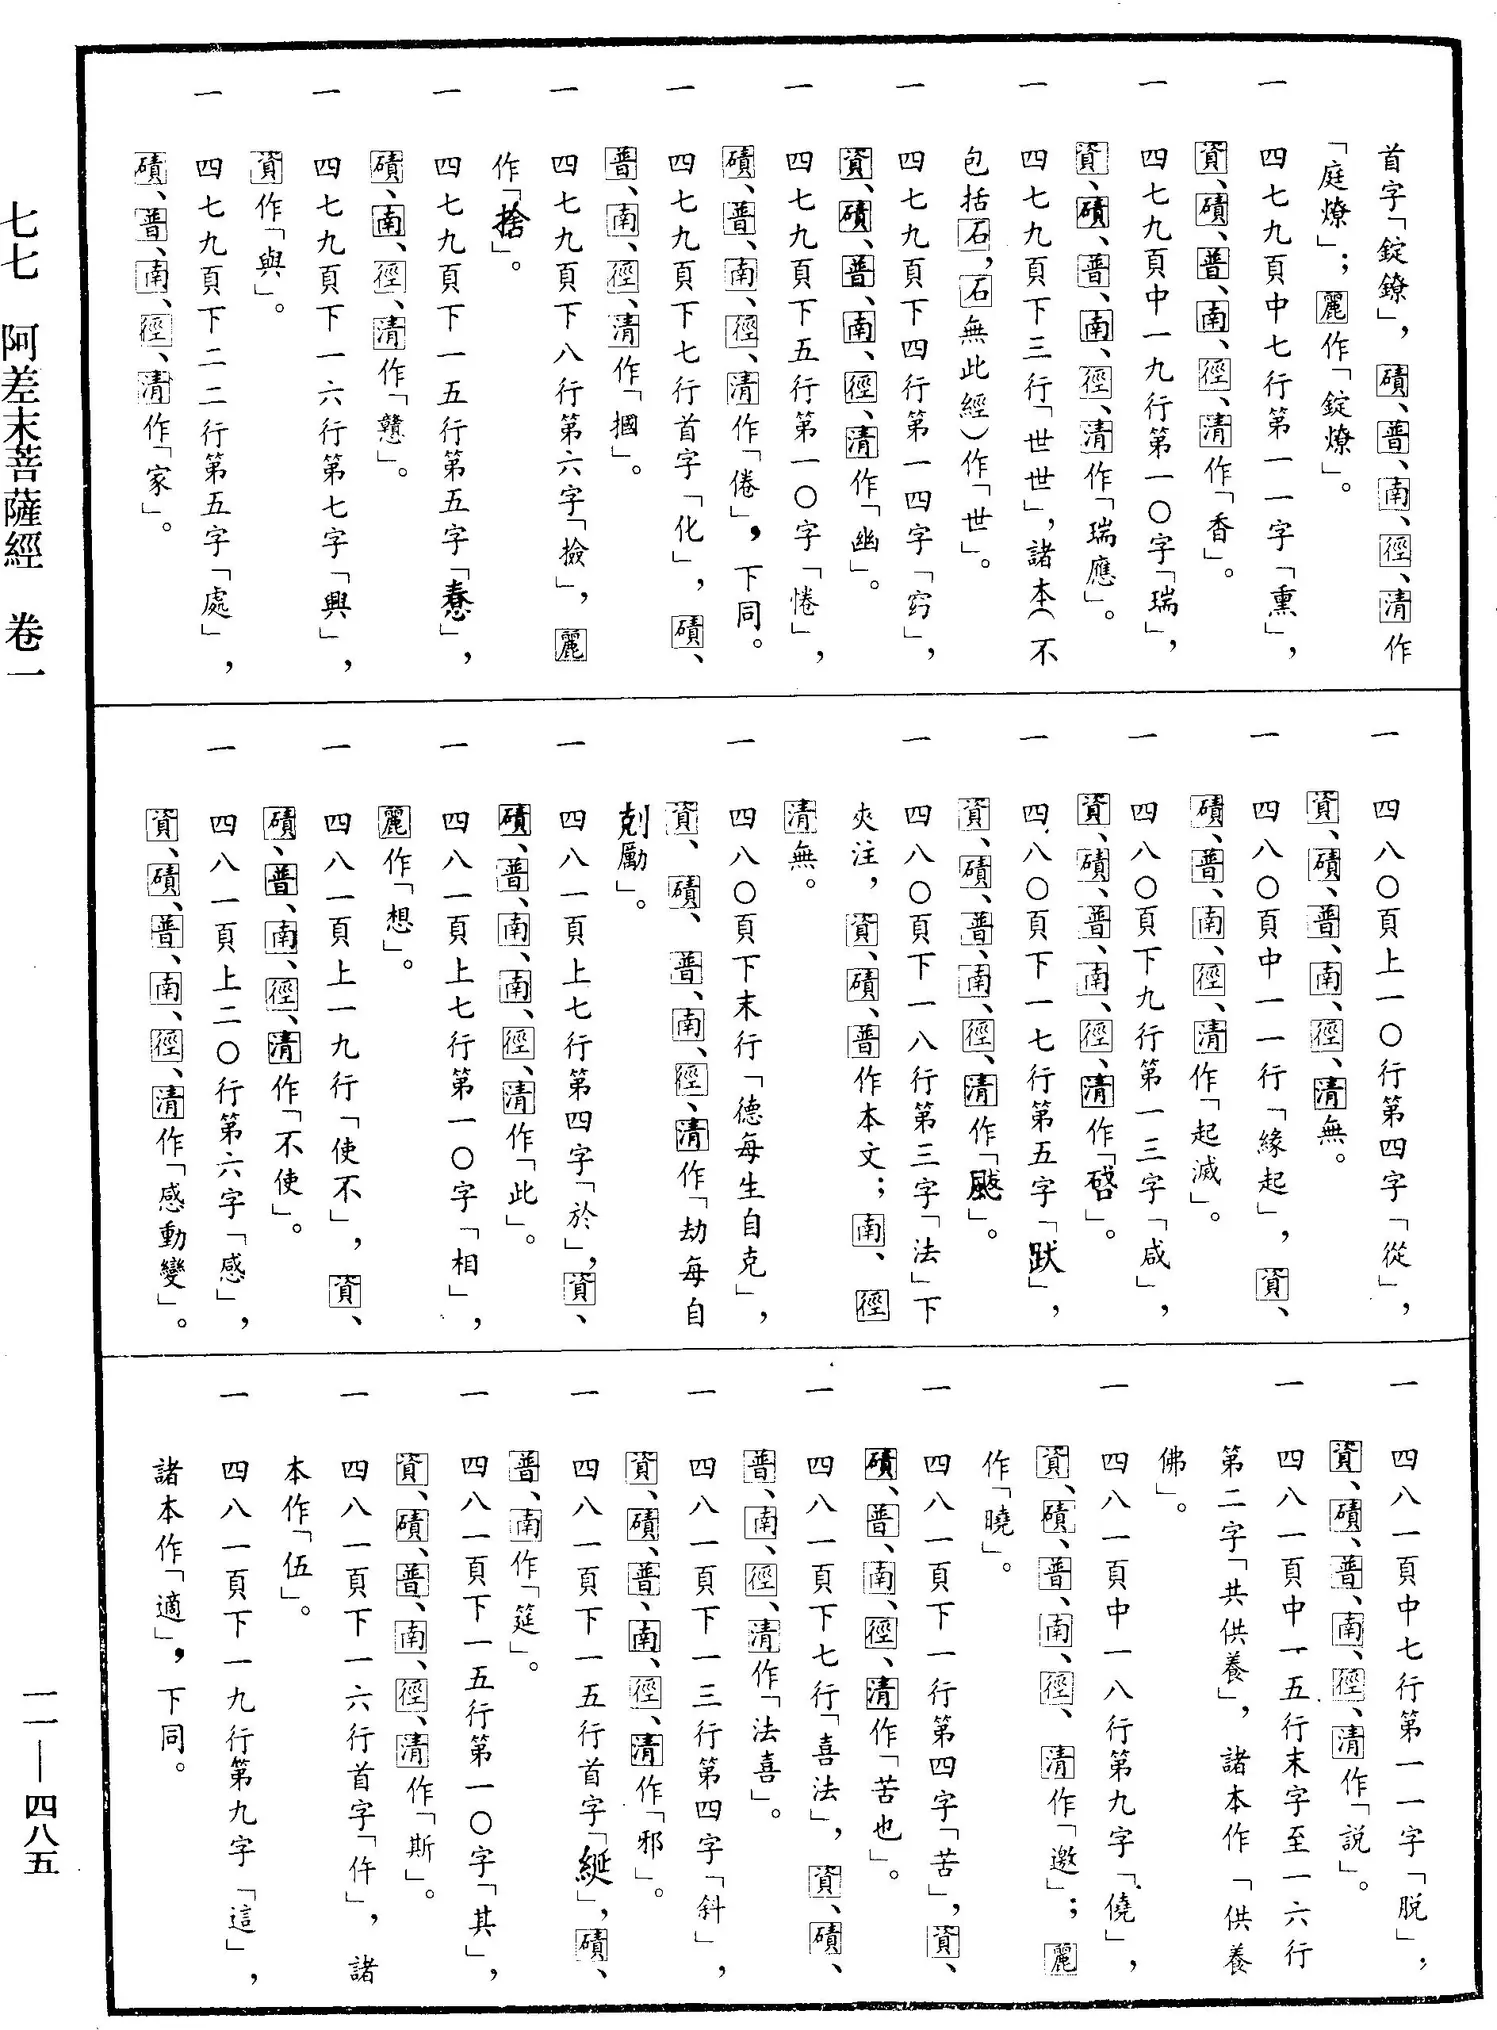 七七　阿差末菩薩經　卷一
首字「錠鐐」，磧、普、南、徑、清作
「庭燎」；麗作「錠燎」。
一　四七九頁中七行第一一字「熏」，
資、磧、普、南、徑、清作「香」。
一　四七九頁中一九行第一〇字「瑞」，
資、磧、普、南、徑、清作「瑞應」。
一　四七九頁下三行「世世」，諸本（不
包括石，石無此經）作「世」。
一　四七九頁下四行第一四字「窈」，
資、磧、普、南、徑、清作「幽」。
一　四七九頁下五行第一〇字「惓」，
磧、普、南、徑、清作「倦」，下同。
一　四七九頁下七行首字「化」，磧、
普、南、徑、清作「摑」。
一　四七九頁下八行第六字「撿」，麗
作「捨」。
一　四七九頁下一五行第五字「憃」，
磧、南、徑、清作「戇」。
一　四七九頁下一六行第七字「興」，
資作「與」。
一　四七九頁下二二行第五字「處」，
磧、普、南、徑、清作「家」。
一　四八〇頁上一〇行第四字「從」，
資、磧、普、南、徑、清無。
一　四八〇頁中一一行「緣起」，資、
磧、普、南、徑、清作「起滅」。
一　四八〇頁下九行第一三字「咸」，
資、磧、普、南、徑、清作「啓」。
一　四八〇頁下一七行第五字「跋」，
資、磧、普、南、徑、清作「颰」。
一　四八〇頁下一八行第三字「法」下
夾注，資、磧、普作本文；南、徑
清無。
一　四八〇頁下末行「德每生自克」，
資、磧、普、南、徑、清作「劫每自
剋勵」。
一　四八一頁上七行第四字「於」，資、
磧、普、南、徑、清作「此」。
一　四八一頁上七行第一〇字「相」，
麗作「想」。
一　四八一頁上一九行「使不」，資、
磧、普、南、徑、清作「不使」。
一　四八一頁上二〇行第六字「感」，
資、磧、普、南、徑、清作「感動變」。
一　四八一頁中七行第一一字「脫」，
資、磧、普、南、徑、清作「說」。
一　四八一頁中一五行末字至一六行
第二字「共供養」，諸本作「供養
佛」。
一　四八一頁中一八行第九字「僥」，
資、磧、普、南、徑、清作「邀」；麗
作「曉」。
一　四八一頁下一行第四字「苦」，資、
磧、普、南、徑、清作「苦也」。
一　四八一頁下七行「喜法」，資、磧、
普、南、徑、清作「法喜」。
一　四八一頁下一三行第四字「斜」，
資、磧、普、南、徑、清作「邪」。
一　四八一頁下一五行首字「綖」，磧、
普、南作「筵」。
一　四八一頁下一五行第一〇字「其」，
資、磧、普、南、徑、清作「斯」。
一　四八一頁下一六行首字「仵」，諸
本作「伍」。
一　四八一頁下一九行第九字「這」，
諸本作「適」，下同。
一一—四八五